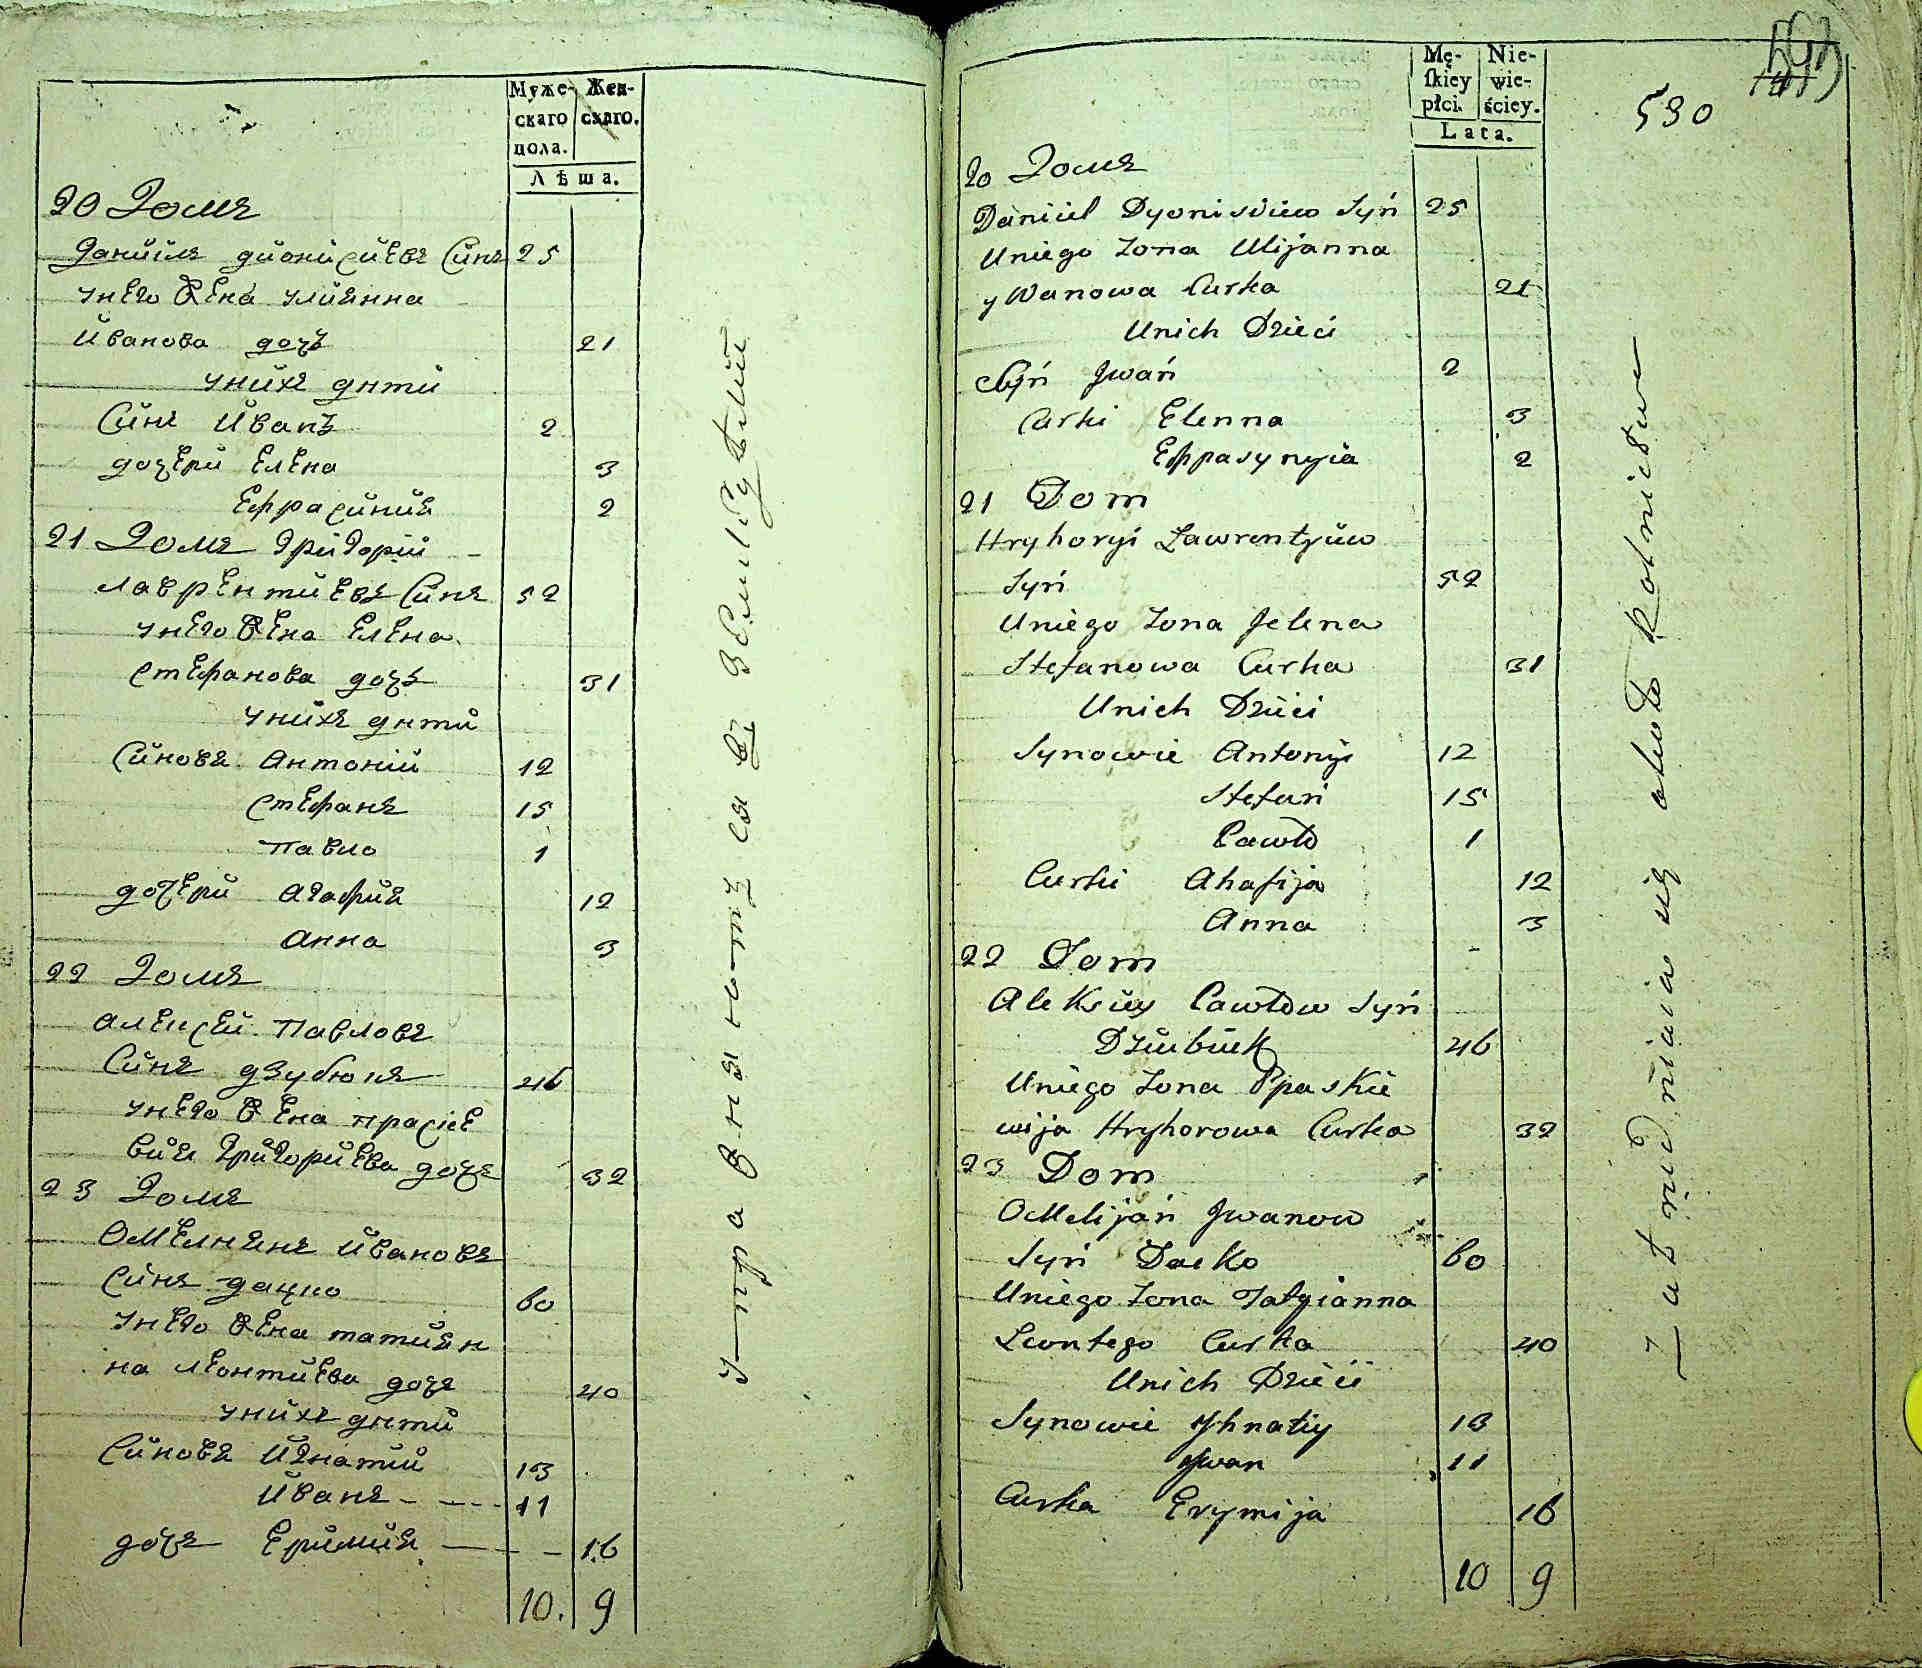 Муже-
скаго
пола.
Жен-
скаго.
Лѣта.
20 Домъ
Даниїлъ дйонисйевъ Синъ 25
унего жена улиянна
Иванова дочъ 21
унихъ дѣти
Синъ Иванъ 2
дочери Елена 3
Ефрасиния 2
21 Домъ Григорій
лаврентиевъ Синъ 52
унего жена Елена
стефанова дочъ 31
унихъ дѣти
Синовя Антоній 12
стефанъ 15
павло 1
дочери Агафия 12
анна 3
22 Домъ
алексей павловъ
Синъ дзубюкъ 46
унего жена праске
вия григориева дочъ 32
23 Домъ
Омелиянъ ивановъ
Синъ дацко 60
унего жена татиян
на леонтиева дочъ 40
унихъ дѣти
Синовя игнатий 13
иванъ 11
дочъ Еримия 16
10. 9
упражняются въ земледелии
Mę-
skiey
płci.
Nie-
wie-
ściey.
Lata.
530
20 Домъ
Daniiel Dyonisiiew Syń 25
Uniego Zona Ulijanna
ywanowa Curka 21
Unich Dzieci
Syń Jwań 2
Curki Elenna 3
Eфpasynyia 2
21 Dom
Hryhoryi Ławrentyiew
Syń 52
Uniego Zona Jelena
Stefanowa Curka 31
Unich Dzieci
Synowie Antonyi 12
Stefań 15
Pawło 1
Curki Ahafija 12
Anna 3
22 Dom
Aleksiey Pawłow Syń
Dziubiuk 46
Uniego Zona Ppaskie
wija Hryhorowa Curka 32
23 Dom
Omelijań Jwanow
Syń Dacko 60
Uniego Zona Tatyianna
Leontego Curka 40
Unich Dzieci
Synowie Yhnatiy 13
Jwan 11
Curka Erymija 16
10 9
Zatrudniaia się około Rolnictwa